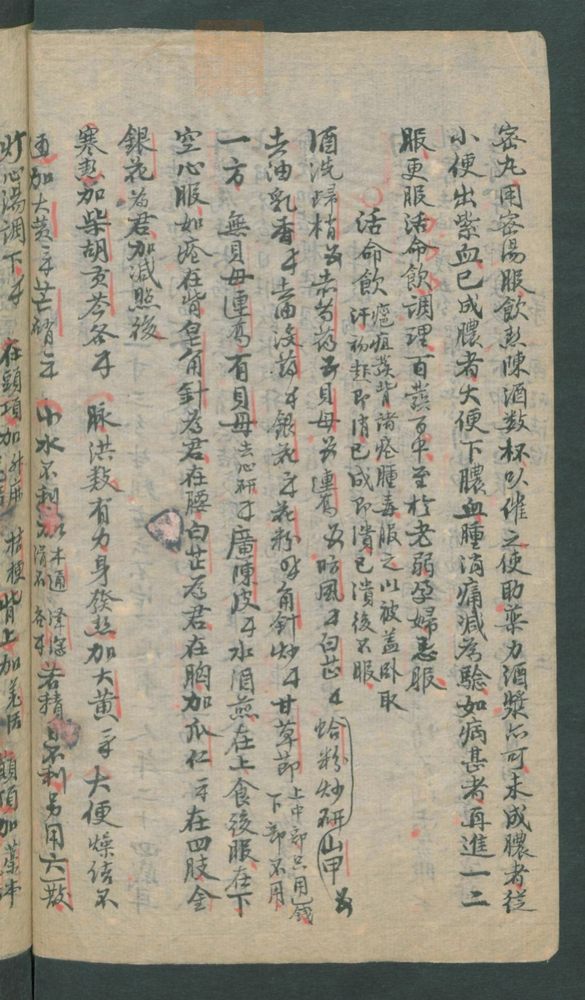 密丸用密湯服飲熱陳酒数杯以催之使助藥力酒漿亦可未成膿者従
小便出紫血已成膿者大便下膿血腫消痛減為驗如病甚者再進一二
服更服活命飲調理百發百中至於老弱孕婦忌服
○活命飲 癰疽發背諸瘡腫毒服之以被盖卧取
汗初起即消已成即潰已潰後不服
酒洗歸梢 赤芍藥 貝母 連翹 防風 白芷 蛤粉炒研山甲
去油乳香 去油沒藥 銀花 花粉 角針炒 甘草節 上中部只用
下部不用
一方 無貝母連翹有貝母去心研 廣陳皮 水酒煎在上食後服在下
空心服如瘡在背皂角針為君在腰白芷為君在胸加瓜仁 在四肢金
銀花為君加減照後
寒熱加柴胡黃芩各 脉洪数有力身發熱加大黃 大便燥結不
通加大黃 芒硝 小水不利加木通 澤瀉 各 若精 不利另用六一散
灯心湯調下 在頭項加升麻 桔梗 背上加羌活 頭頂加藁本